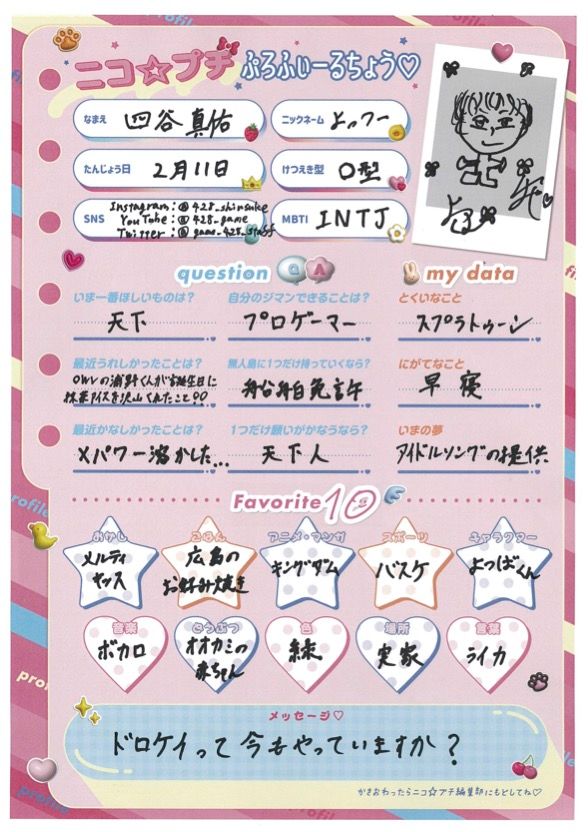 ニコ☆プチ ぷろふぃーるちょう♡
なまえ 四谷真佑
ニックネーム よっつー
たんじょう日 2月11日
けつえき型 O型
SNS Instagram:@428_shinsuke
YouTube:@428_game
Twitter:@game_428_staff
MBTI INTJ
question Q A
いま一番ほしいものは?
天下
自分のジマンできることは?
プロゲーマー
最近うれしかったことは?
OWVの浦野くんが誕生日に
抹茶アイスを沢山くれたこと!!
無人島に1つだけ持っていくなら?
船舶免許
最近かなしかったことは?
Xパワー溶かした...
1つだけ願いがかなうなら?
天下人
my data
とくいなこと
スプラトゥーン
にがてなこと
早寝
いまの夢
アイドルソングの提供
Favorite10
おかし
メルティ
キッス
ごはん
広島の
お好み焼き
アニメ・マンガ
キングダム
スポーツ
バスケ
キャラクター
よつばくん
音楽
ボカロ
どうぶつ
オオカミの
赤ちゃん
色
緑
場所
実家
言葉
ライカ
メッセージ♡
ドロケイって今もやっていますか?
かきおわったらニコ☆プチ編集部にもどしてね♡
profile